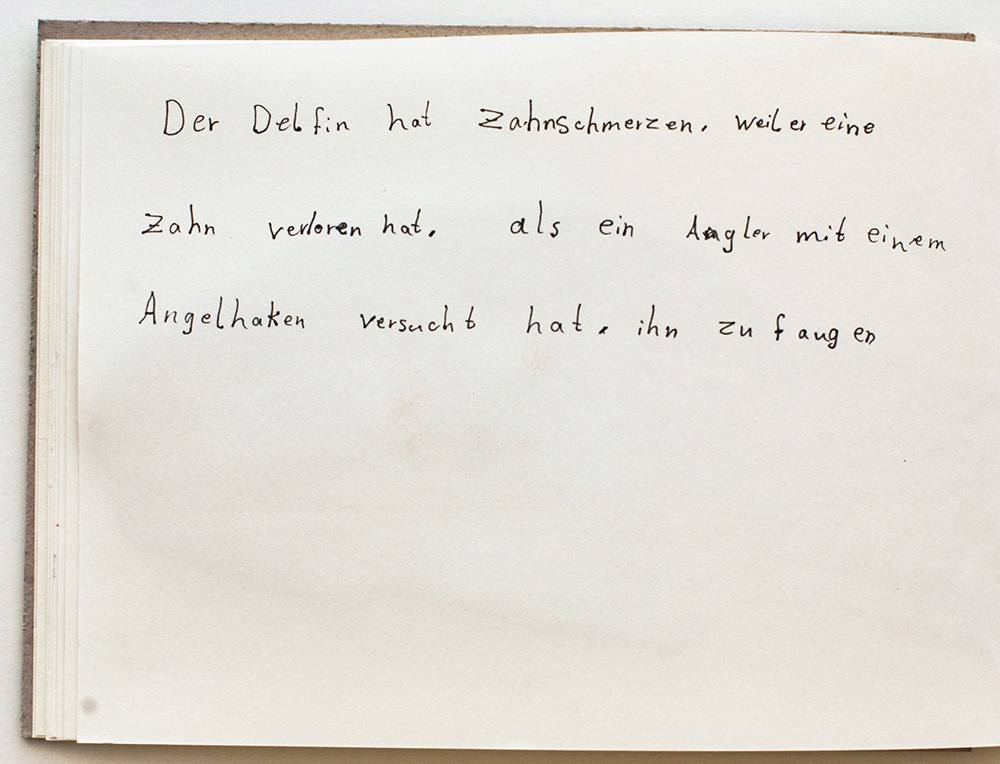 Der Delfin hat Zahnschmerzen, weil er eine
Zahn verloren hat, als ein Angler mit einem
Angelhaken versucht hat, ihn zu fangen